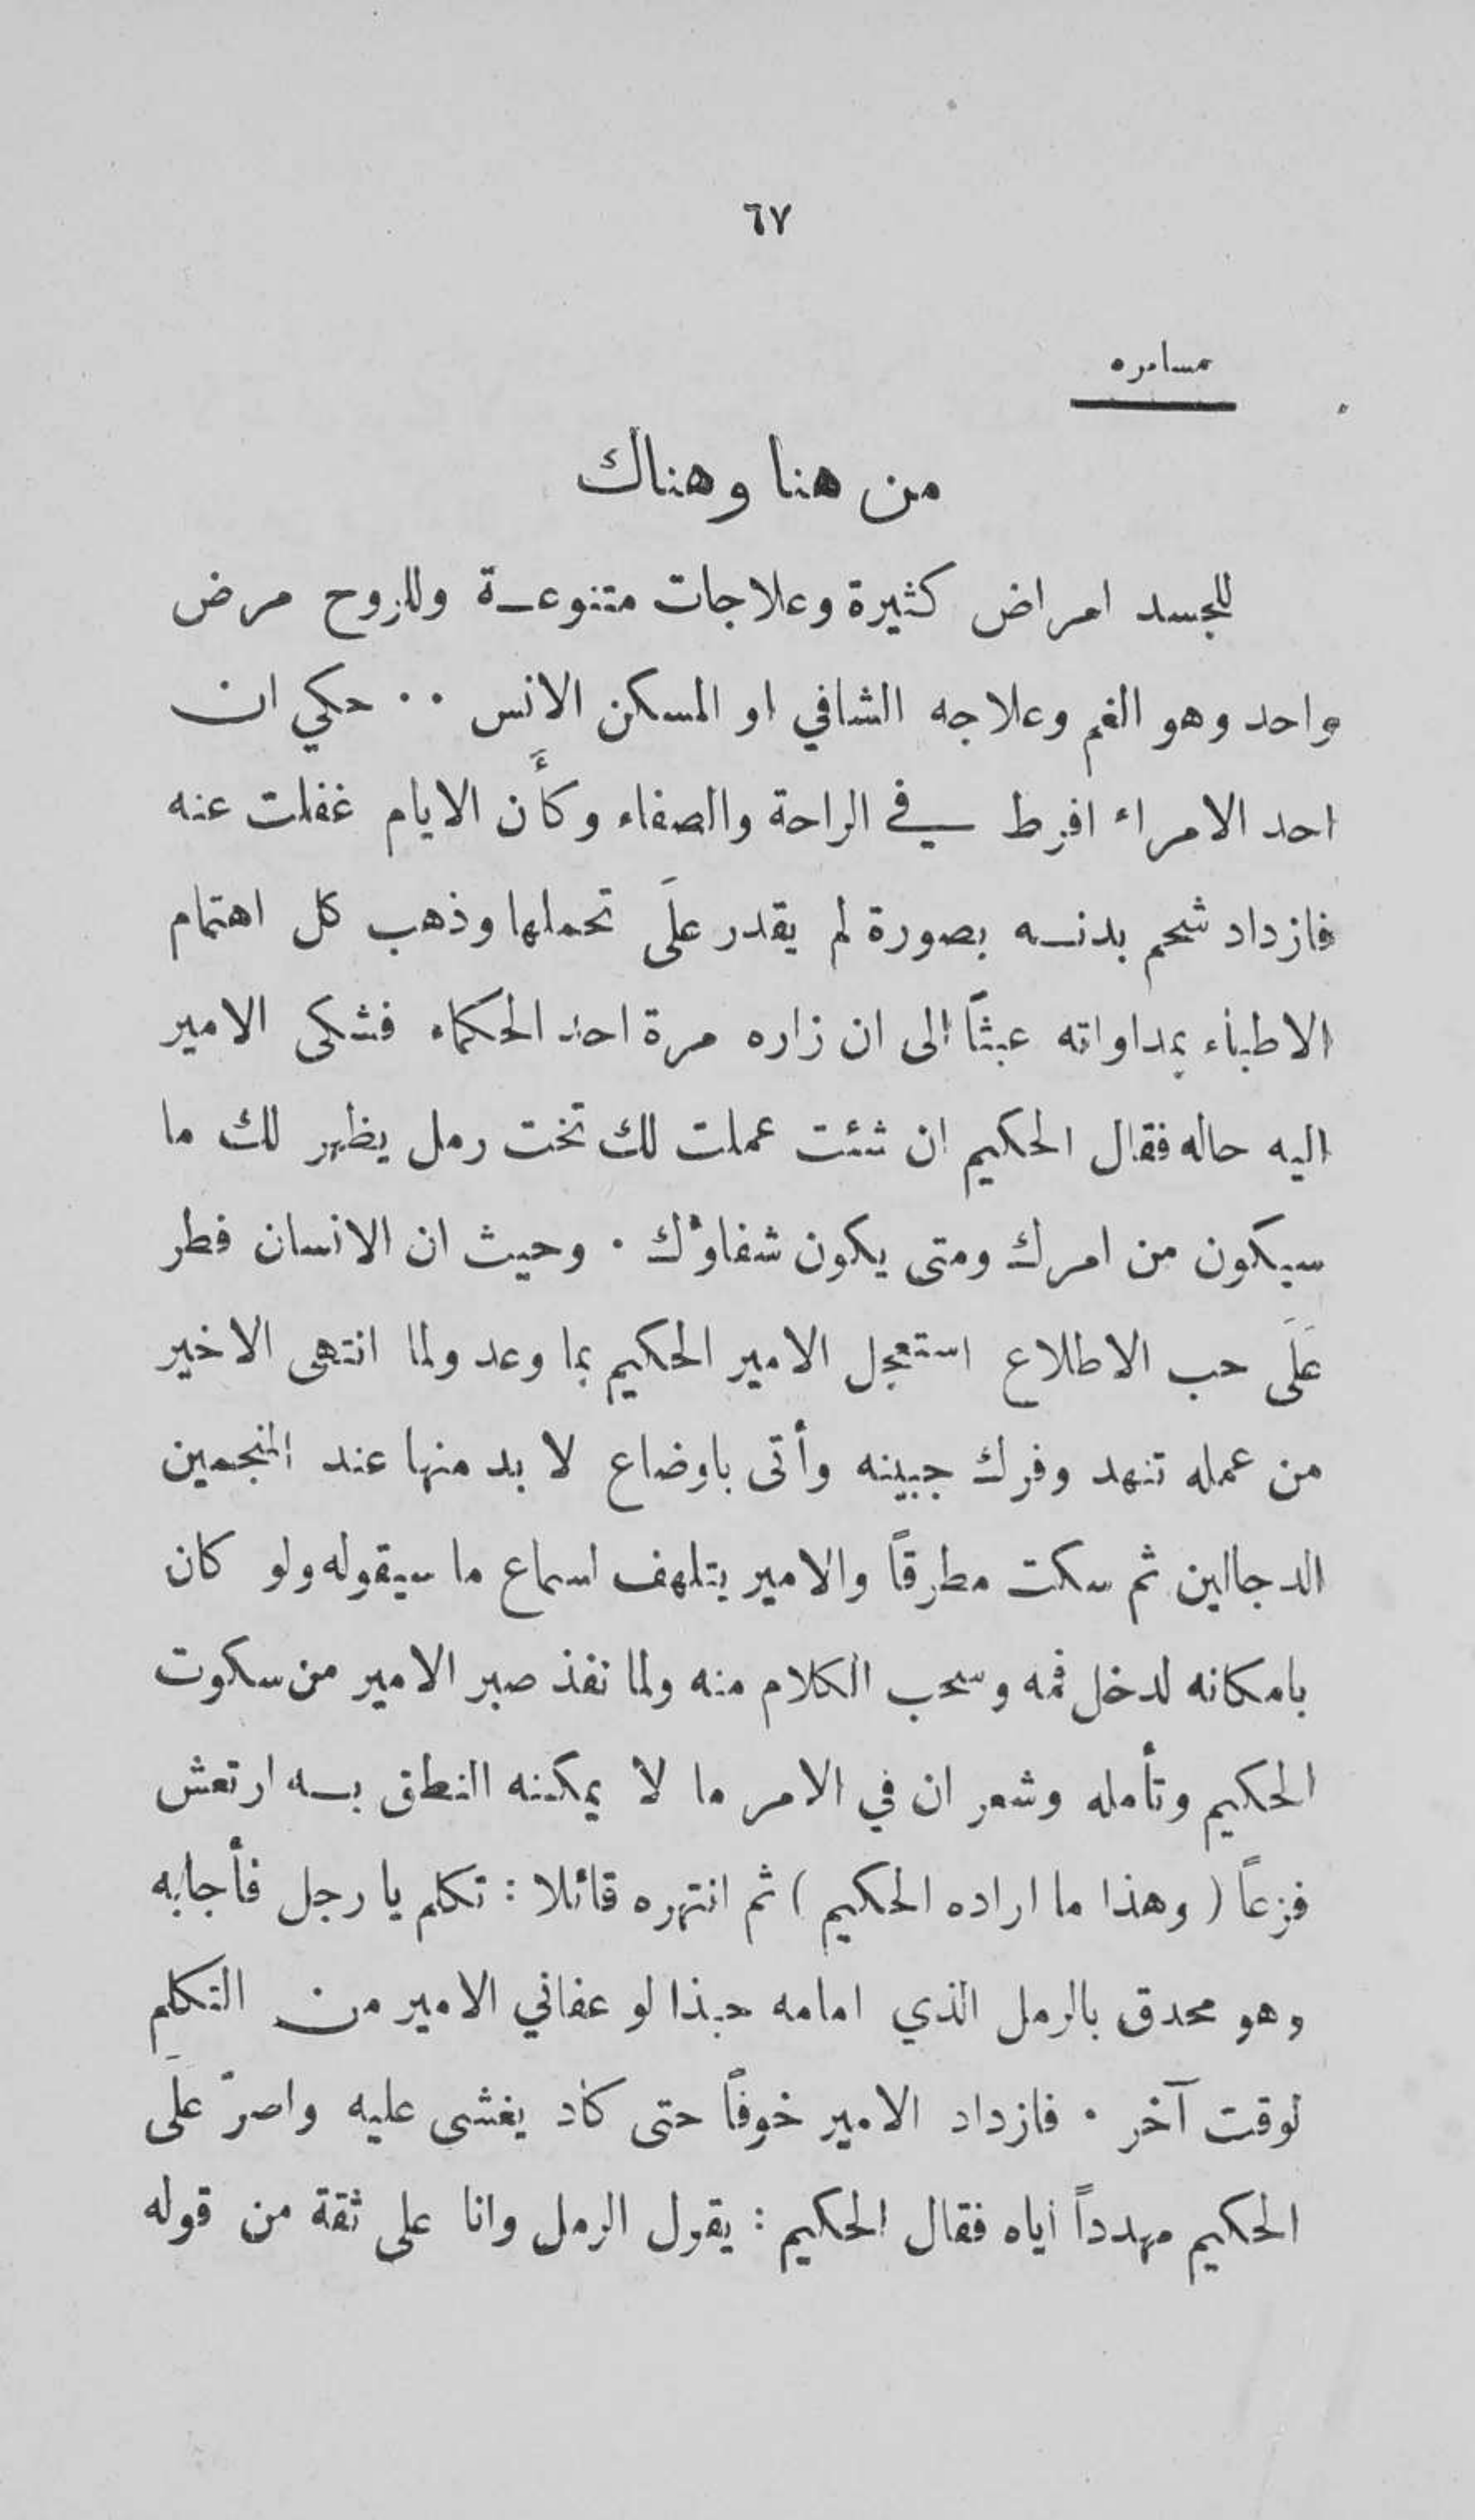 ٦٧
مسامره
من هنا وهناك
للجسد امراض كثيرة وعلاجات متنوعـة وللروح مرض
واحد وهو الغم وعلاجه الشافي او المسكن الانس ۰۰ حكي ان
احد الامراء افرط في الراحة والصفاء وكأَن الايام غفلت عنه
فازداد شحم بدنـه بصورة لم يقدر علَى تحملها وذهب كل اهتمام
الاطباء بمداواته عبثاً الى ان زاره مرة احد الحكماء فشكى الامير
اليه حاله فقال الحكيم ان شئت عملت لك تخت رمل يظهر لك ما
سيكون من امرك ومتى يكون شفاؤك . وحيث ان الانسان فطر
عَلَى حب الاطلاع استعجل الامير الحكيم بما وعد ولما انتهى الاخير
من عمله تنهد وفرك جبينه وأتى باوضاع لا بد منها عند المنجمين
الدجالين ثم سكت مطرقاً والامير يتلهف لسماع ما سيقوله ولو كان
بامكانه لدخل فمه وسحب الكلام منه ولما نفذ صبر الامير من سكوت
الحكيم وتأمله وشعر ان في الامر ما لا يمكنه النطق بـه ارتعش
فزعاً ( وهذا ما اراده الحكيم ) ثم انتهره قائلا : تكلم يا رجل فأجابه
وهو محدق بالرمل الذي امامه حبذا لو عفاني الامير من التكلم
لوقت آخر . فازداد الامير خوفاً حتى كاد يغشى عليه واصرّ علَى
الحكيم مهدداً اياه فقال الحكيم : يقول الرمل وانا على ثقة من قوله